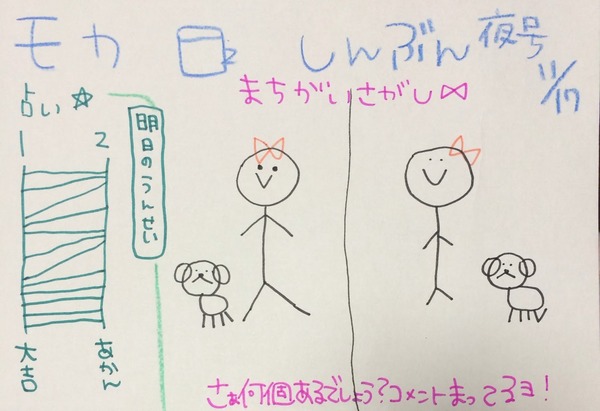 モカ しんぶん 夜号
11/17
まちがいさがし
占い☆
1 2
明日のうんせい
大吉 あかん
さぁ何個あるでしょう?コメントまってるヨ!